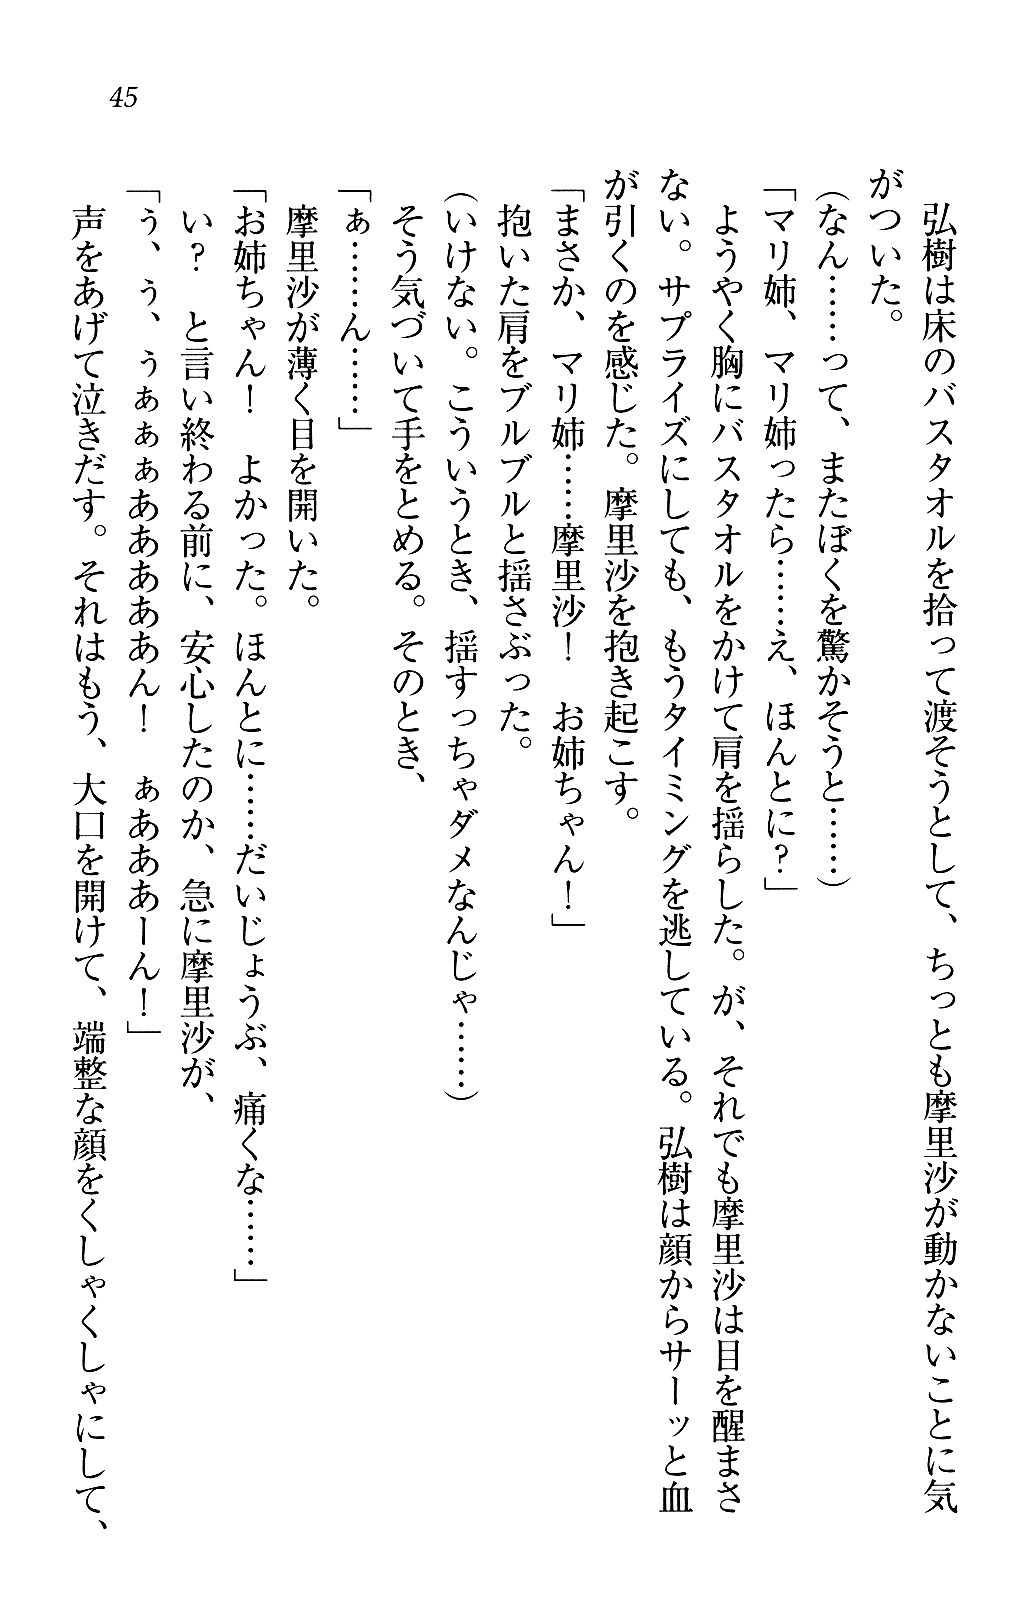 45
弘樹は床のバスタオルを拾って渡そうとして、ちっとも摩里沙が動かないことに気
がついた。
(なん……って、またぼくを驚かそうと……)
「マリ姉、マリ姉ったら……え、ほんとに?」
ようやく胸にバスタオルをかけて肩を揺らした。が、それでも摩里沙は目を醒まさ
ない。サプライズにしても、もうタイミングを逃している。弘樹は顔からサーッと血
が引くのを感じた。摩里沙を抱き起こす。
「まさか、マリ姉……摩里沙! お姉ちゃん!」
抱いた肩をブルブルと揺さぶった。
(いけない。こういうとき、揺すっちゃダメなんじゃ……)
そう気づいて手をとめる。そのとき、
「ぁ……ん……」
摩里沙が薄く目を開いた。
「お姉ちゃん! よかった。ほんとに……だいじょうぶ、痛くな……」
い? と言い終わる前に、安心したのか、急に摩里沙が、
「う、う、うぁぁぁああああん! ぁあああーん!」
声をあげて泣きだす。それはもう、大口を開けて、端整な顔をくしゃくしゃにして、